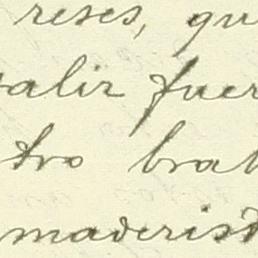 reses, qu
salir fuer
tro brab
maderist